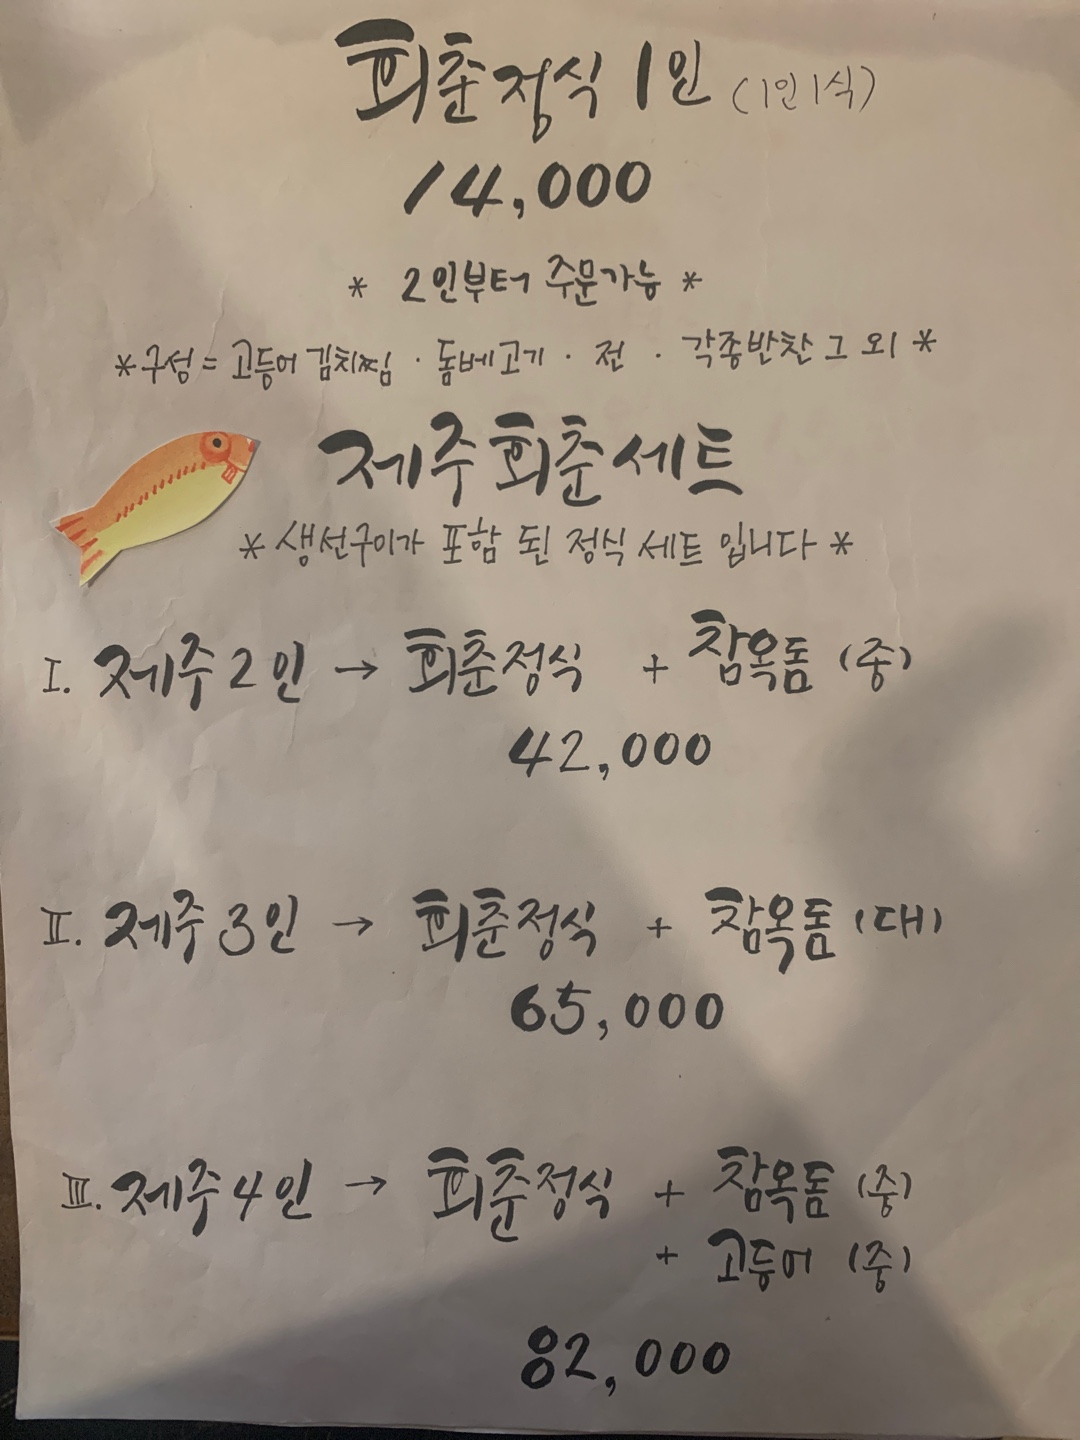 회춘정식 1인 (1인 1식)
14,000
* 2인부터 주문가능 *
* 구성 = 고등어 김치찜 · 돔베고기 · 전 · 각종반찬 그 외 *
제주 회춘세트
* 생선구이가 포함 된 정식 세트 입니다 *
I. 제주 2인 → 회춘정식 + 참옥돔 (중)
42,000
II. 제주 3인 → 회춘정식 + 참옥돔 (대)
65,000
III. 제주 4인 → 회춘정식 + 참옥돔 (중)
+ 고등어 (중)
82,000